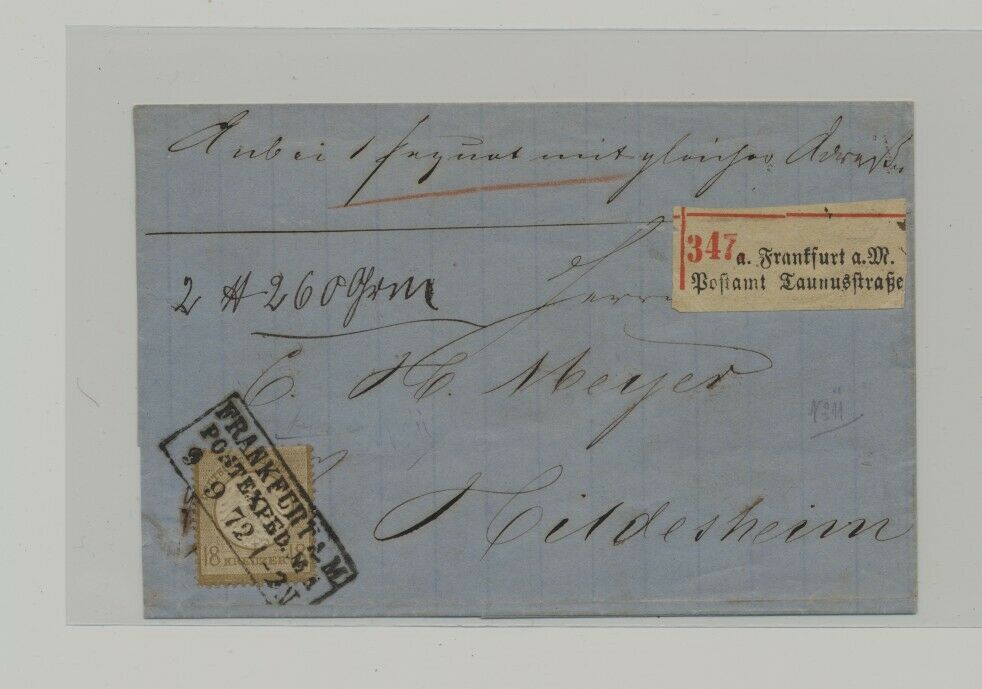 Anbei 1 Paquet mit gleicher Adresse
347 a. Frankfurt a. M.
Postamt Taunusstraße
2 ℔ 260 Grm
Herrn
C. H. Meyer
Hildesheim
FRANKFURT A. M.
POSTEXPED. No 1
9 9 72 1-2N
18 KREUZER 18